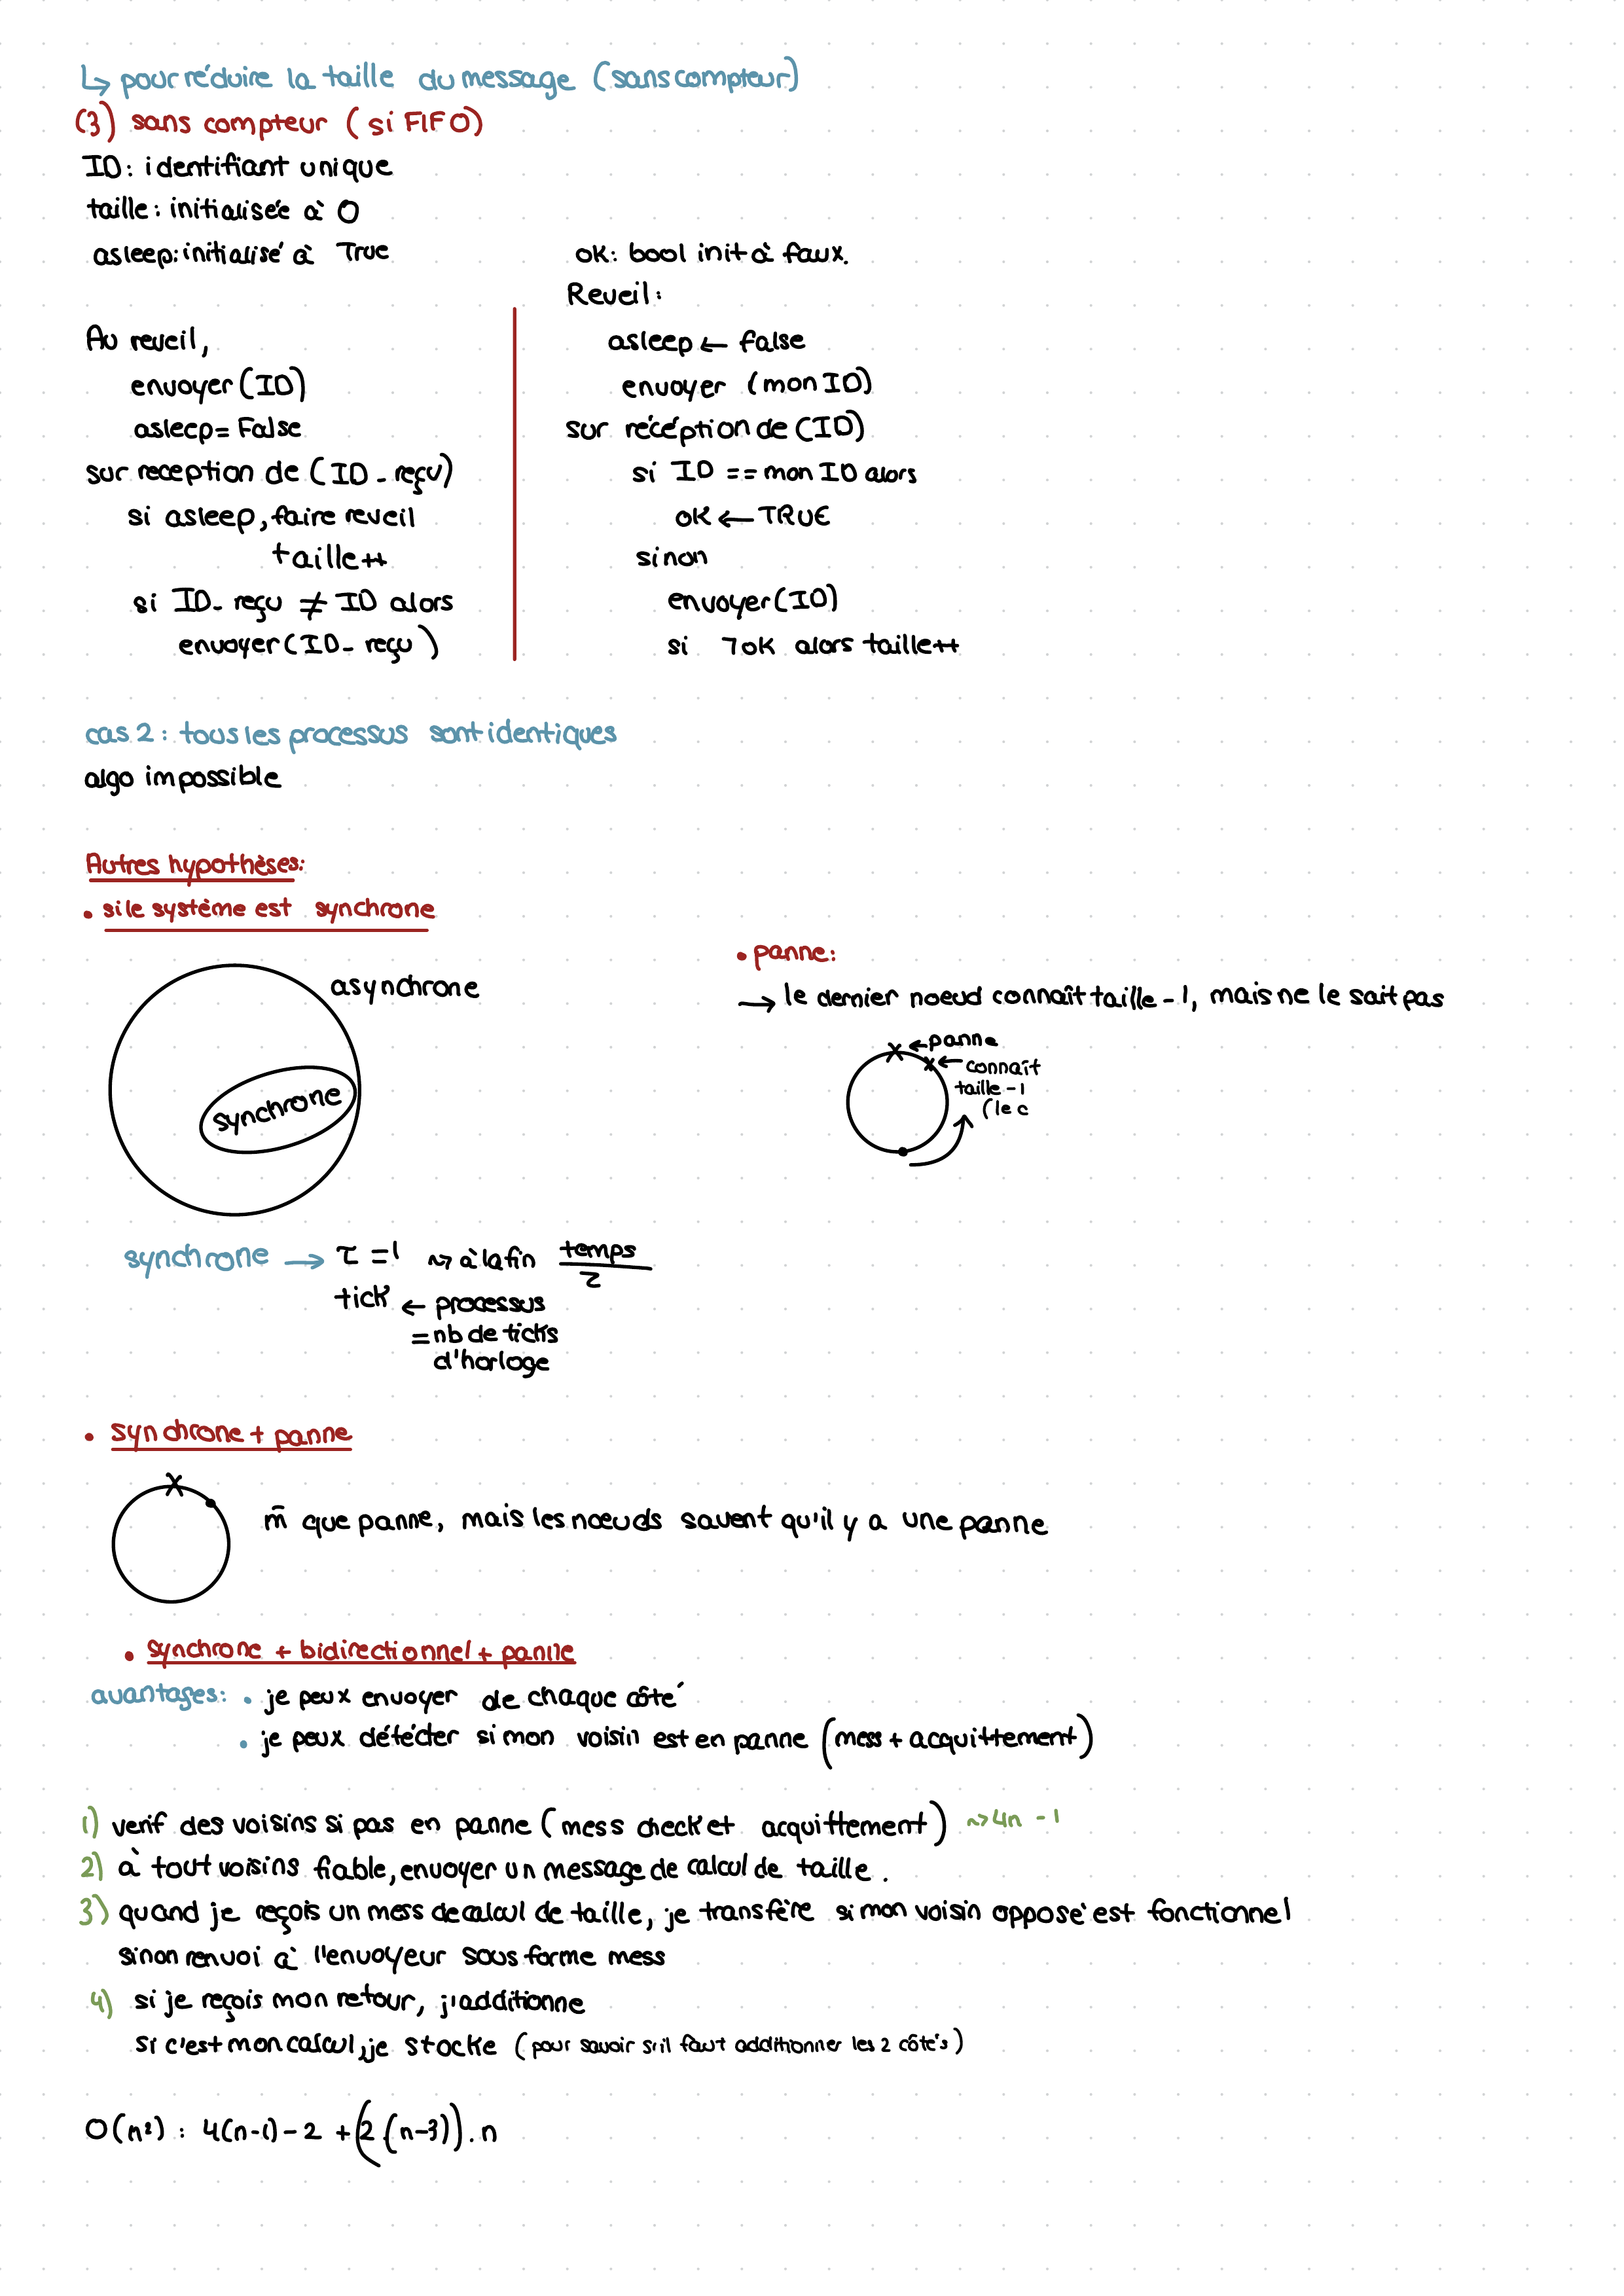 ↳ pour réduire la taille du message (sans compteur)
(3) sans compteur (si FIFO)
ID: identifiant unique
taille: initialisée à 0
asleep: initialisé à True
Au reveil,
envoyer(ID)
asleep = False
sur reception de (ID_reçu)
si asleep, faire reveil
taille++
si ID_reçu ≠ ID alors
envoyer(ID_reçu)
ok: bool init à faux.
Reveil:
asleep ← false
envoyer (mon ID)
sur récéption de (ID)
si ID == mon ID alors
ok ← TRUE
sinon
envoyer(ID)
si ¬ok alors taille++
cas 2: tous les processus sont identiques
algo impossible
Autres hypothèses:
• si le système est synchrone
asynchrone
synchrone
• panne:
→ le dernier noeud connaît taille-1, mais ne le sait pas
← panne
← connaît
taille-1
(le c
synchrone → τ = 1 ⇝ à la fin temps/τ
tick ← processus
= nb de ticks
d'horloge
• synchrone + panne
m̄ que panne, mais les nœuds savent qu'il y a une panne
• synchrone + bidirectionnel + panne
avantages: • je peux envoyer de chaque côté
• je peux détécter si mon voisin est en panne (mess + acquittement)
1) verif des voisins si pas en panne (mess check et acquittement) ⇝ 4n - 1
2) à tout voisins fiable, envoyer un message de calcul de taille.
3) quand je reçois un mess de calcul de taille, je transfère si mon voisin opposé est fonctionnel
sinon renvoi à l'envoyeur sous forme mess
4) si je reçois mon retour, j'additionne
si c'est mon calcul, je stocke (pour savoir s'il faut additionner les 2 côtés)
O(n²) : 4(n-1) - 2 + (2.(n-3)).n